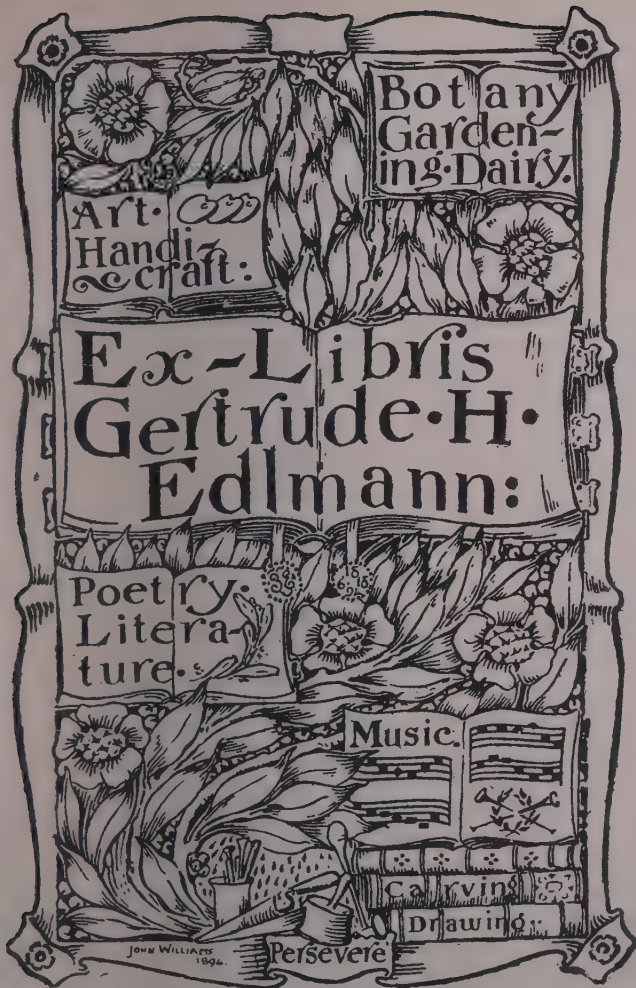 Botany
Garden-
ing·Dairy.
Art·
Handi-
craft:
Ex-Libris
Gertrude·H·
Edlmann:
Poetry·
Litera-
ture·
Music.
Carving
Drawing·
JOHN WILLIAMS
1894.
Persevere